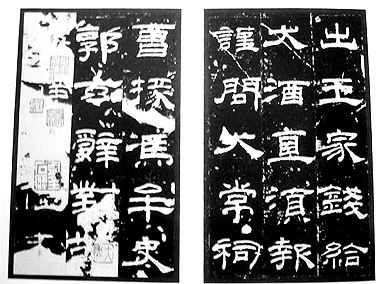 出王家錢給
犬酒直須報
謹問大常祠
曹掾馮牟史
郭玄辭對故